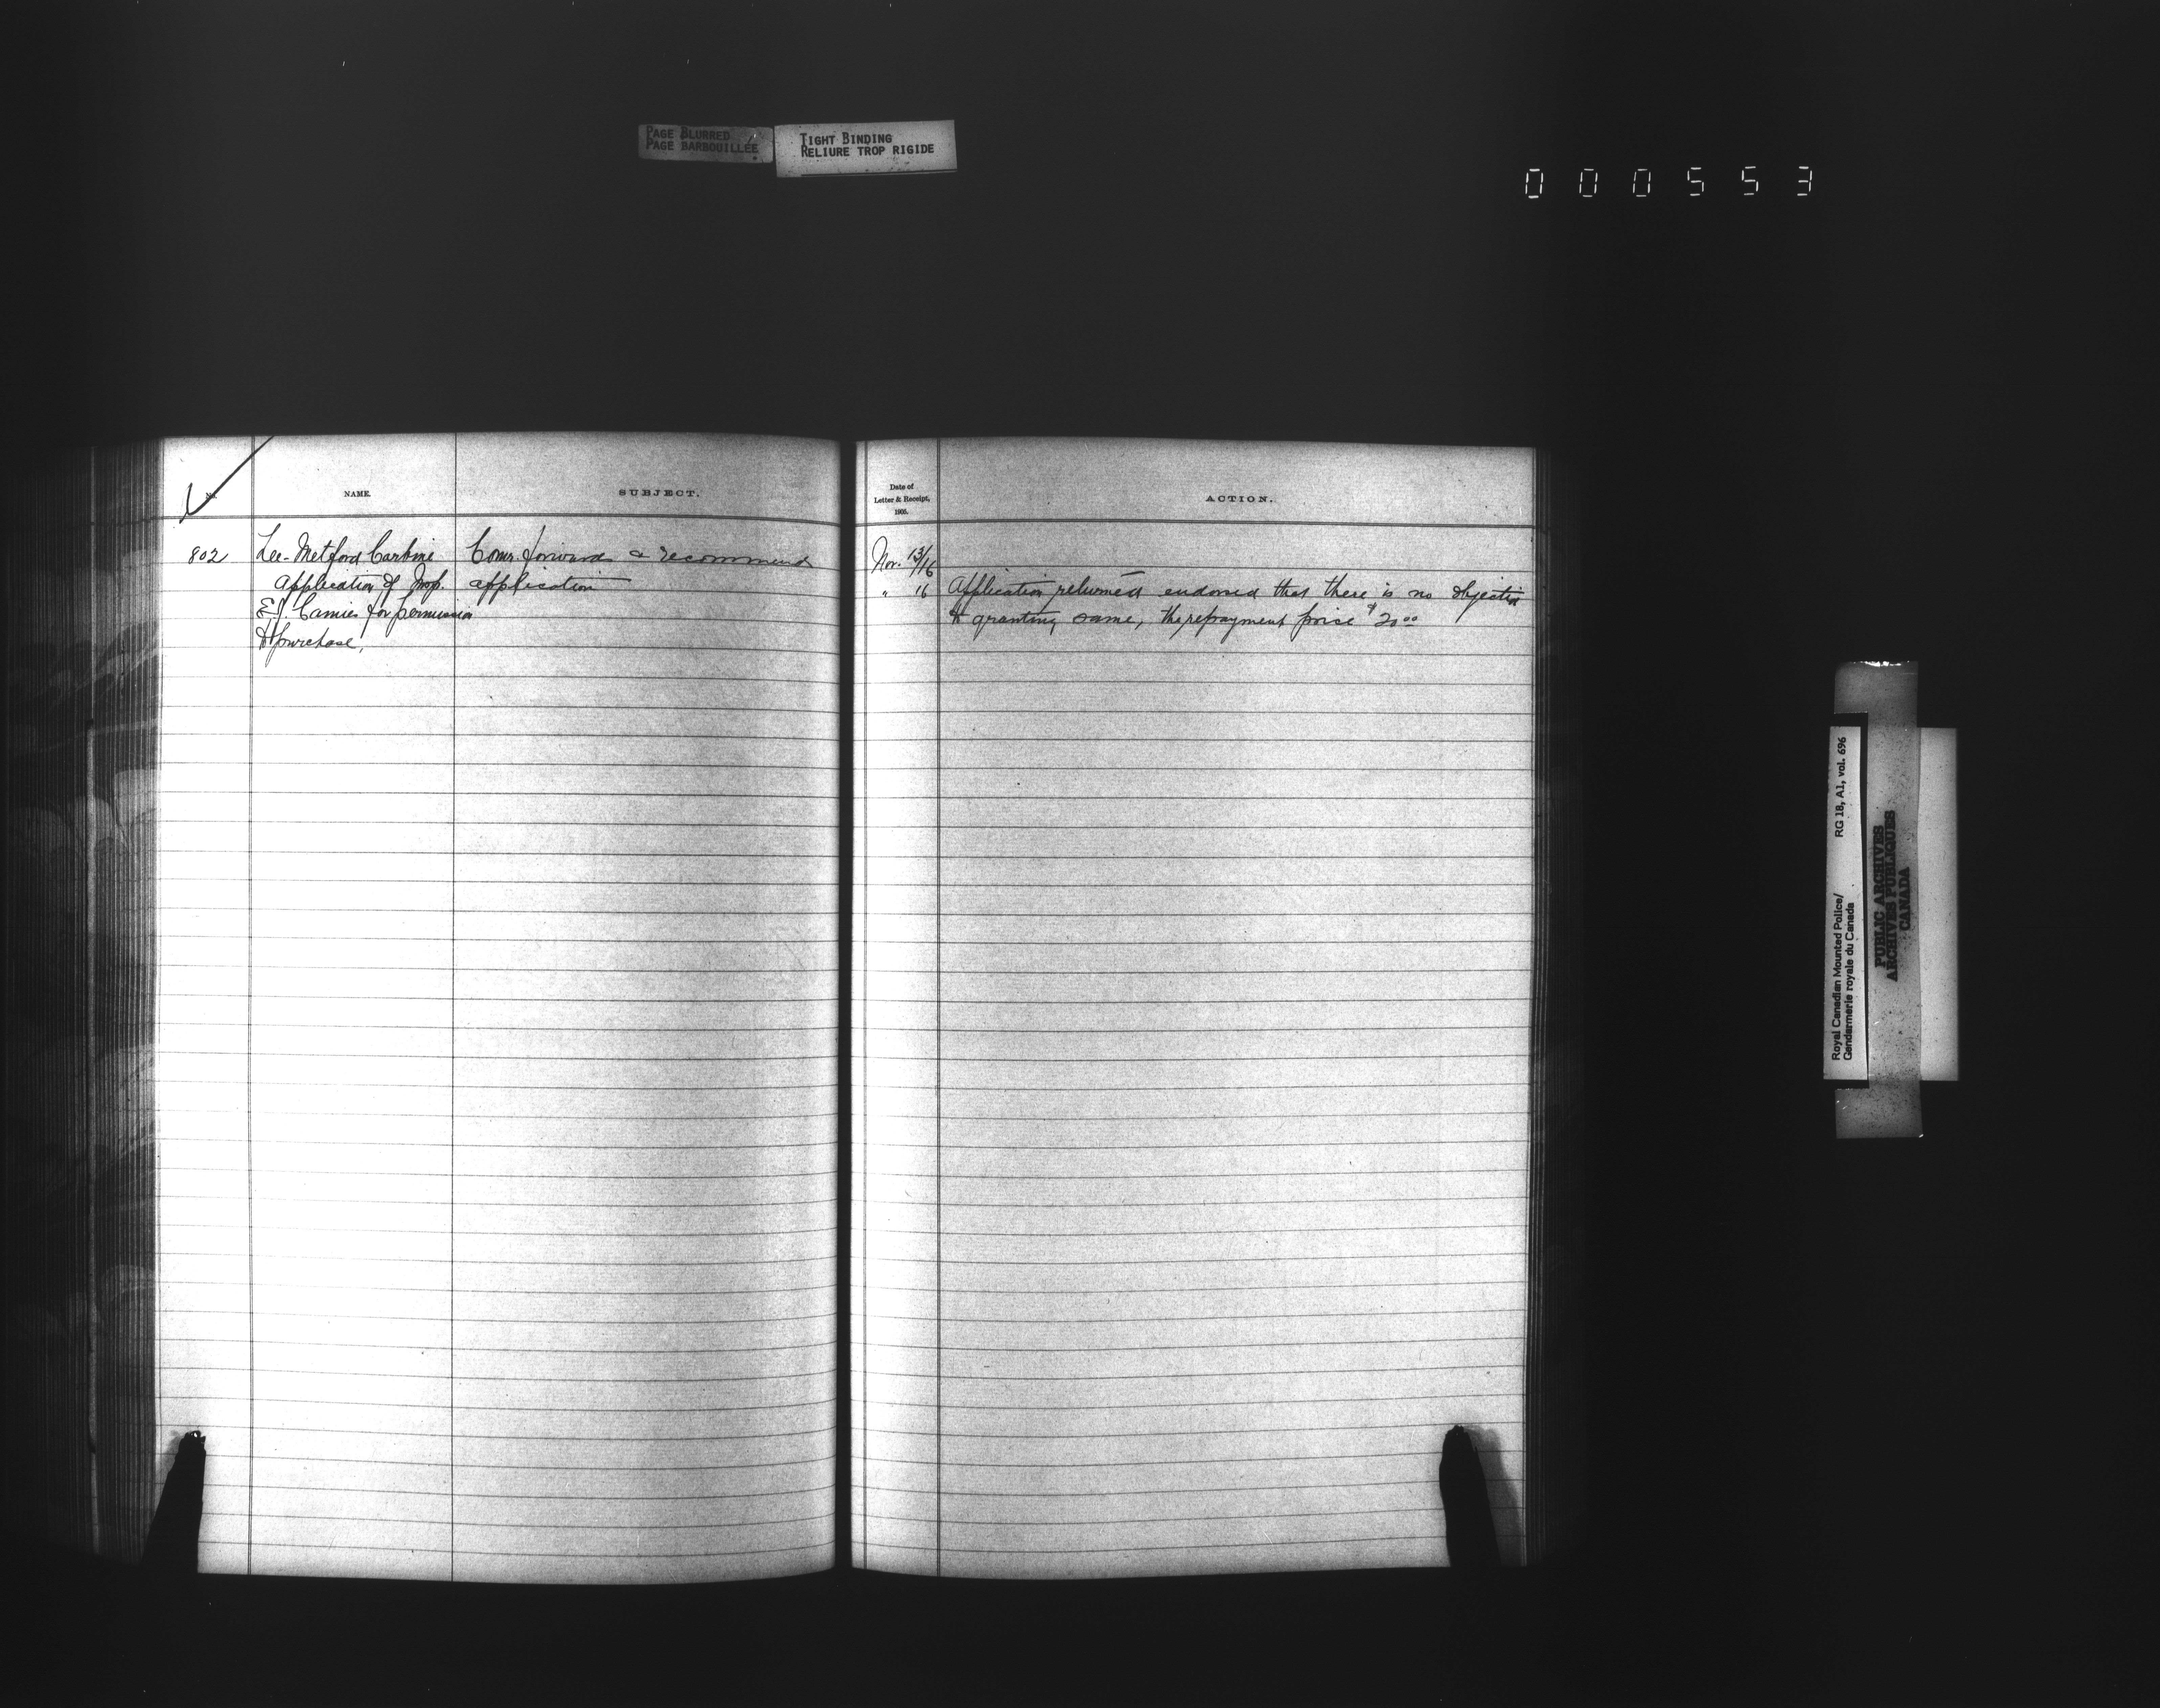 PAGE BLURRED
PAGE BARBOUILLÉE
TIGHT BINDING
RELIURE TROP RIGIDE
000553
No.
NAME.
SUBJECT.
Date of
Letter & Receipt,
1905.
ACTION.
802
Lee-Metford Carbine
Application of Insp.
E.J. Camies for permission
to purchase,
Comr. forwards & recommends
application
Nov. 13/16
" 16
Application returned endorsed that there is no objection
to granting same, the repayment price $20.00
Royal Canadian Mounted Police/
Gendarmerie royale du Canada
RG 18, A1, vol. 696
PUBLIC ARCHIVES
ARCHIVES PUBLIQUES
CANADA